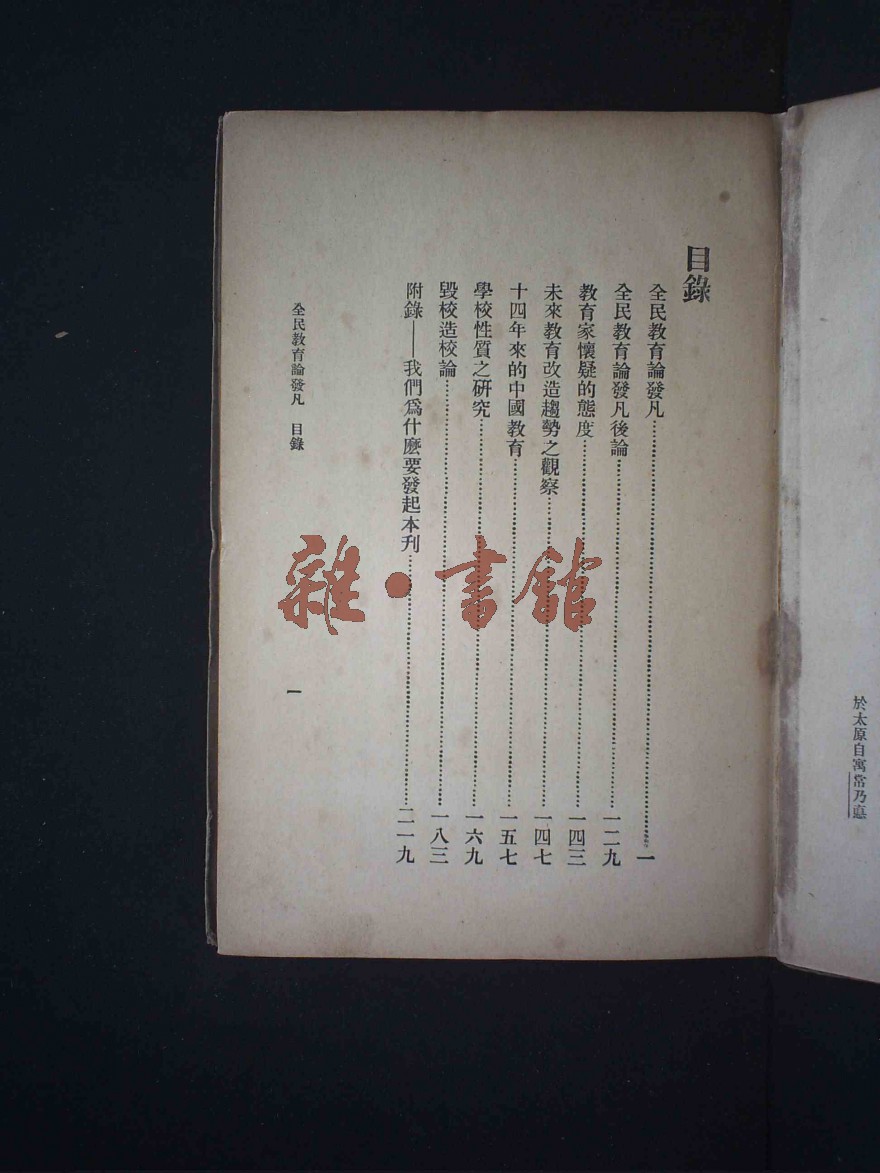 於太原自寓常乃悳
目錄
全民教育論發凡……一
全民教育論發凡後論……一二九
教育家懷疑的態度……一四三
未來教育改造趨勢之觀察……一四七
十四年來的中國教育……一五七
學校性質之研究……一六九
毀校造校論……一八三
附錄——我們爲什麽要發起本刊……二一九
全民教育論發凡 目錄 一
雜·書館